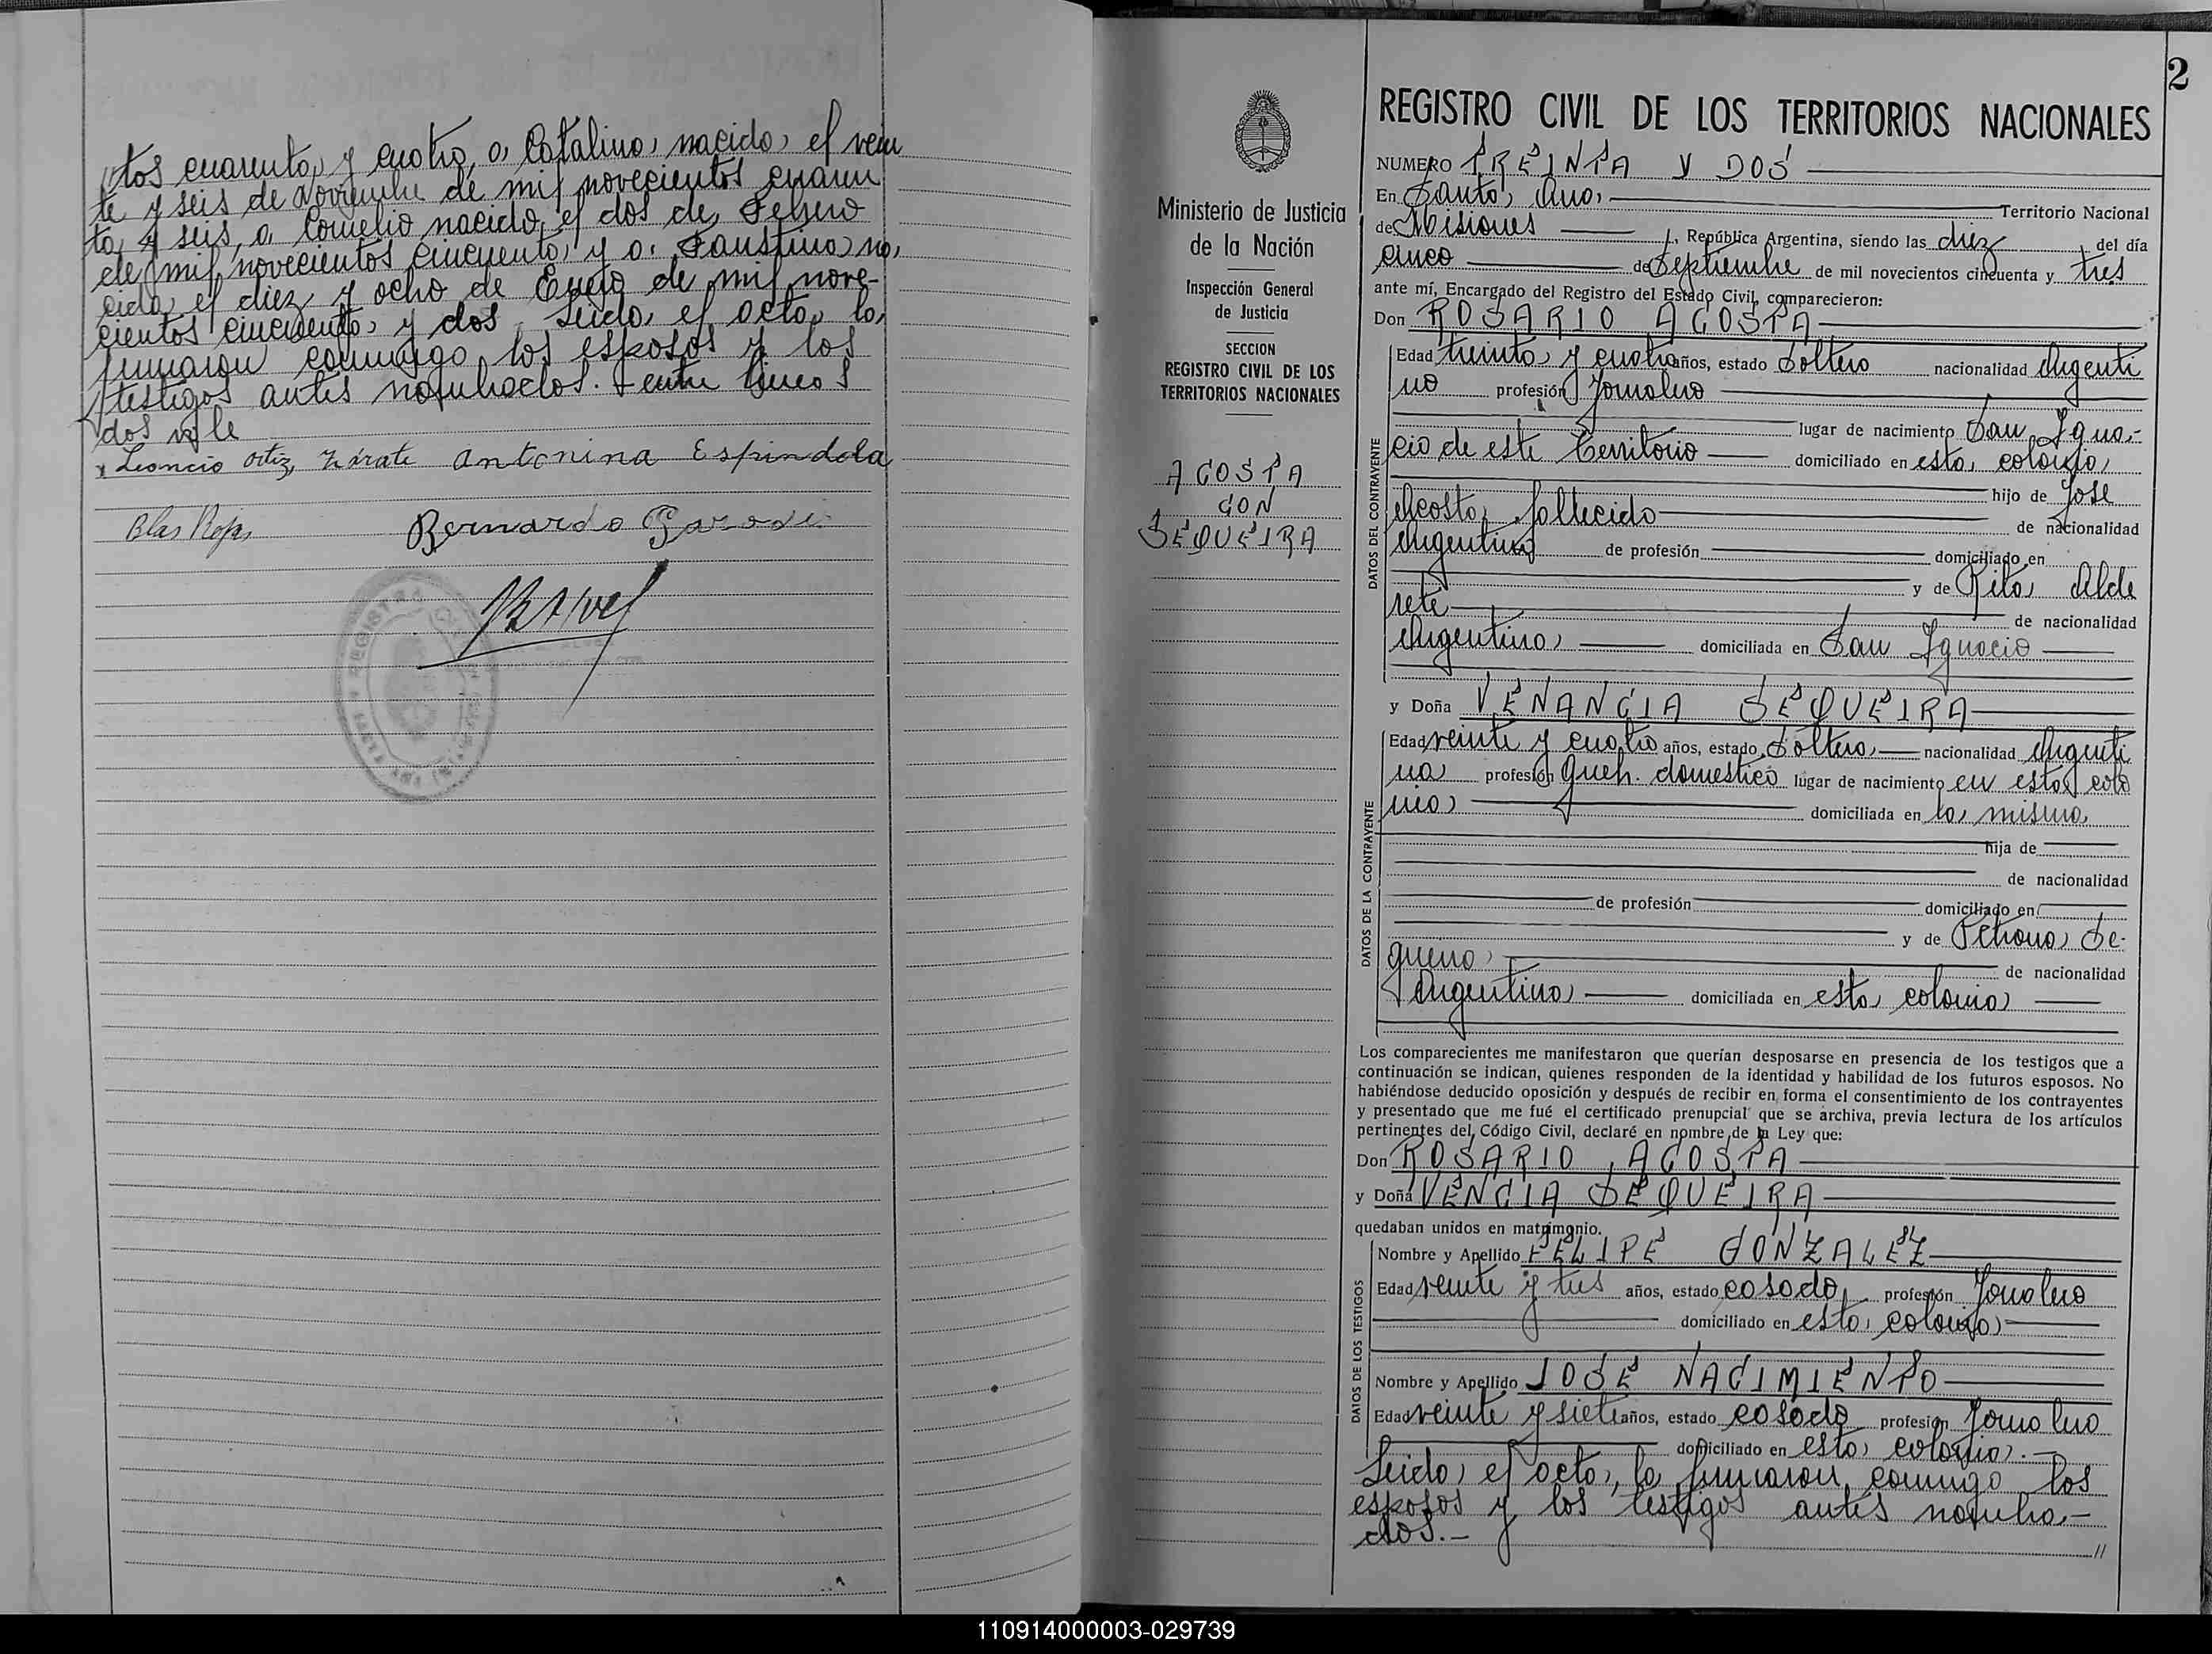 tos cuarenta y cuatro, a Catalina, nacida, el vein
te y seis de Noviembre de mil novecientos cuaren
ta, y seis, a Cornelio nacido, el dos de, Febrero
de mil novecientos cincuenta, y a Faustina na,
cida, el diez y ocho de Enero de mil nove-
cientos cincuenta, y dos. Leida, el acta, la,
firmaron conmigo los esposos y los
testigos antes nombrados.
dos vale
Leoncio Ortiz, Zárate Antonina Espindola
Blas Rojas Bernardo
2
REGISTRO CIVIL DE LOS TERRITORIOS NACIONALES
Ministerio de Justicia
de la Nación
Inspección General
de Justicia
SECCION
REGISTRO CIVIL DE LOS
TERRITORIOS NACIONALES
ACOSTA
CON
SEQUEIRA
NUMERO TREINTA Y DOS
En Santa, Ana, Territorio Nacional
de Misiones, República Argentina, siendo las diez del día
cinco de Septiembre de mil novecientos cincuenta y tres
ante mí, Encargado del Registro del Estado Civil, comparecieron:
Don ROSARIO ACOSTA
DATOS DEL CONTRAYENTE
Edad treinta y cuatro años, estado Soltero nacionalidad Argenti
no profesión Jornalero
lugar de nacimiento San Igna-
cio de este Territorio domiciliado en esta, colonia,
hijo de José
Acosta, fallecido de nacionalidad
Argentina de profesión domiciliado en
y de Rita, Alde
rete de nacionalidad
Argentina, domiciliada en San Ignacio
y Doña VENANCIA SEQUEIRA
DATOS DE LA CONTRAYENTE
Edad veinte y cuatro años, estado Soltera, nacionalidad Argenti
na, profesión Queh. domestico lugar de nacimiento en esta, colo
nia, domiciliada en la, misma,
hija de
de nacionalidad
de profesión domiciliado en
y de Petrona, Se-
queira, de nacionalidad
Argentina, domiciliada en esta, colonia,
Los comparecientes me manifestaron que querían desposarse en presencia de los testigos que a
continuación se indican, quienes responden de la identidad y habilidad de los futuros esposos. No
habiéndose deducido oposición y después de recibir en forma el consentimiento de los contrayentes
y presentado que me fué el certificado prenupcial que se archiva, previa lectura de los artículos
pertinentes del Código Civil, declaré en nombre de la Ley que:
Don ROSARIO ACOSTA
y Doña VENCIA SEQUEIRA
quedaban unidos en matrimonio.
DATOS DE LOS TESTIGOS
Nombre y Apellido FELIPE GONZALEZ
Edad veinte y tres años, estado casado, profesión Jornalero
domiciliado en esta, colonia,
Nombre y Apellido JOSE NACIMIENTO
Edad veinte y siete años, estado casado profesión Jornalero
domiciliado en esta, colonia,.-
Leida, el acta, la firmaron conmigo los
esposos y los testigos antes nombra,-
dos.-
//
110914000003-029739